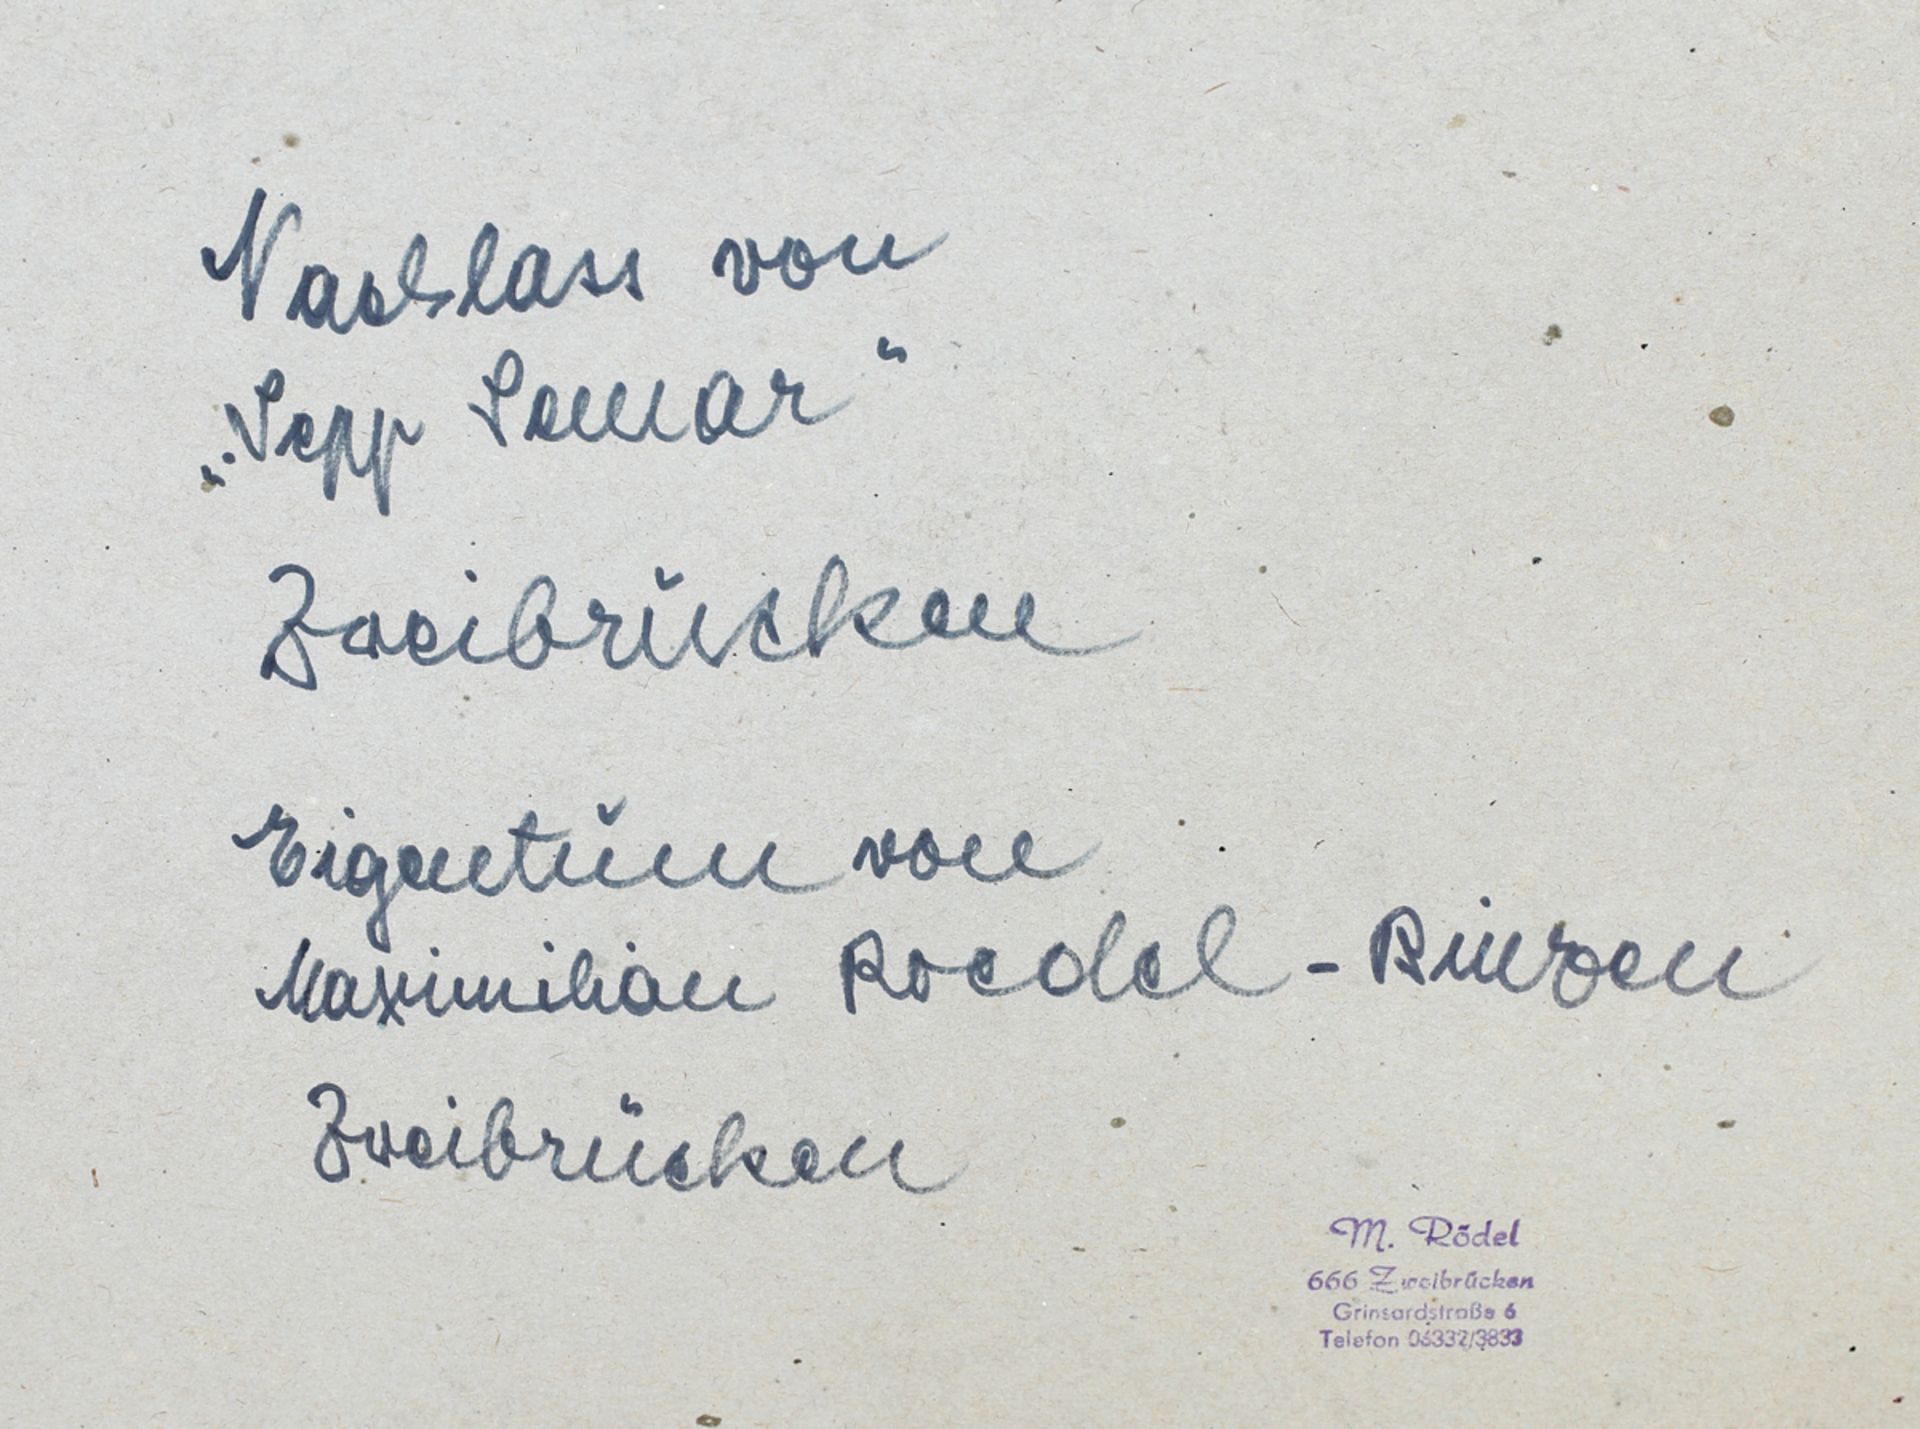 Nachlass von
„Sepp Semar“
Zweibrücken
Eigentum von
Maximilian Roedel - Rinzen
Zweibrücken
M. Rödel
666 Zweibrücken
Grinsardstraße 6
Telefon 06332/3833